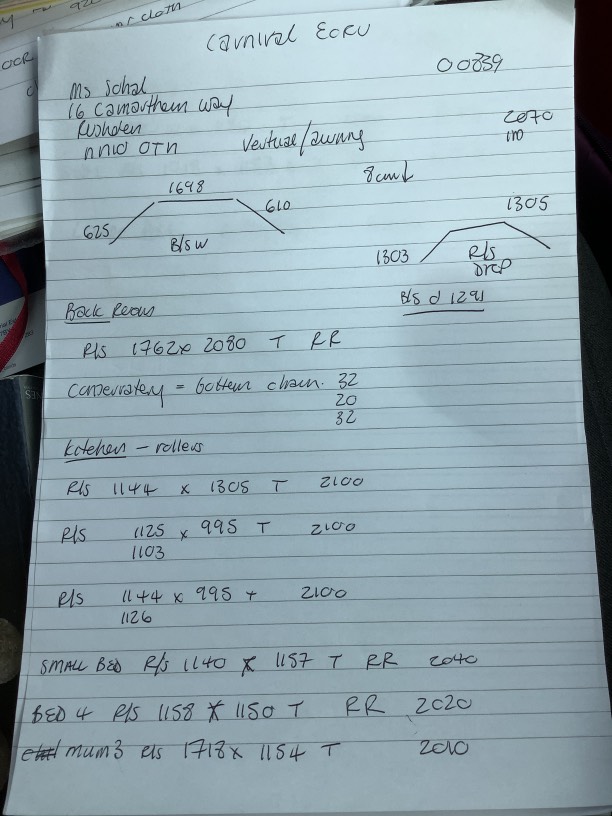 Carnival Ecru
00839
Ms Sohal
16 Camarthem Way
Rushden
NN10 0TN
Vertual/awning
2070
8cm↓
1698
625
610
B/s W
1305
1303
R/s
Drop
B/s d 1291
Back Room
R/s 1762 x 2080 T RR
Conservatory = bottem chain. 32
20
32
Kitchen - rollers
R/s 1144 x 1305 T 2100
R/s 1125 x 995 T 2100
1103
R/s 1144 x 995 T 2100
1126
SMALL BED R/s 1140 x 1157 T RR 2040
BED 4 R/s 1158 x 1150 T RR 2020
mum3 R/s 1718 x 1154 T 2010